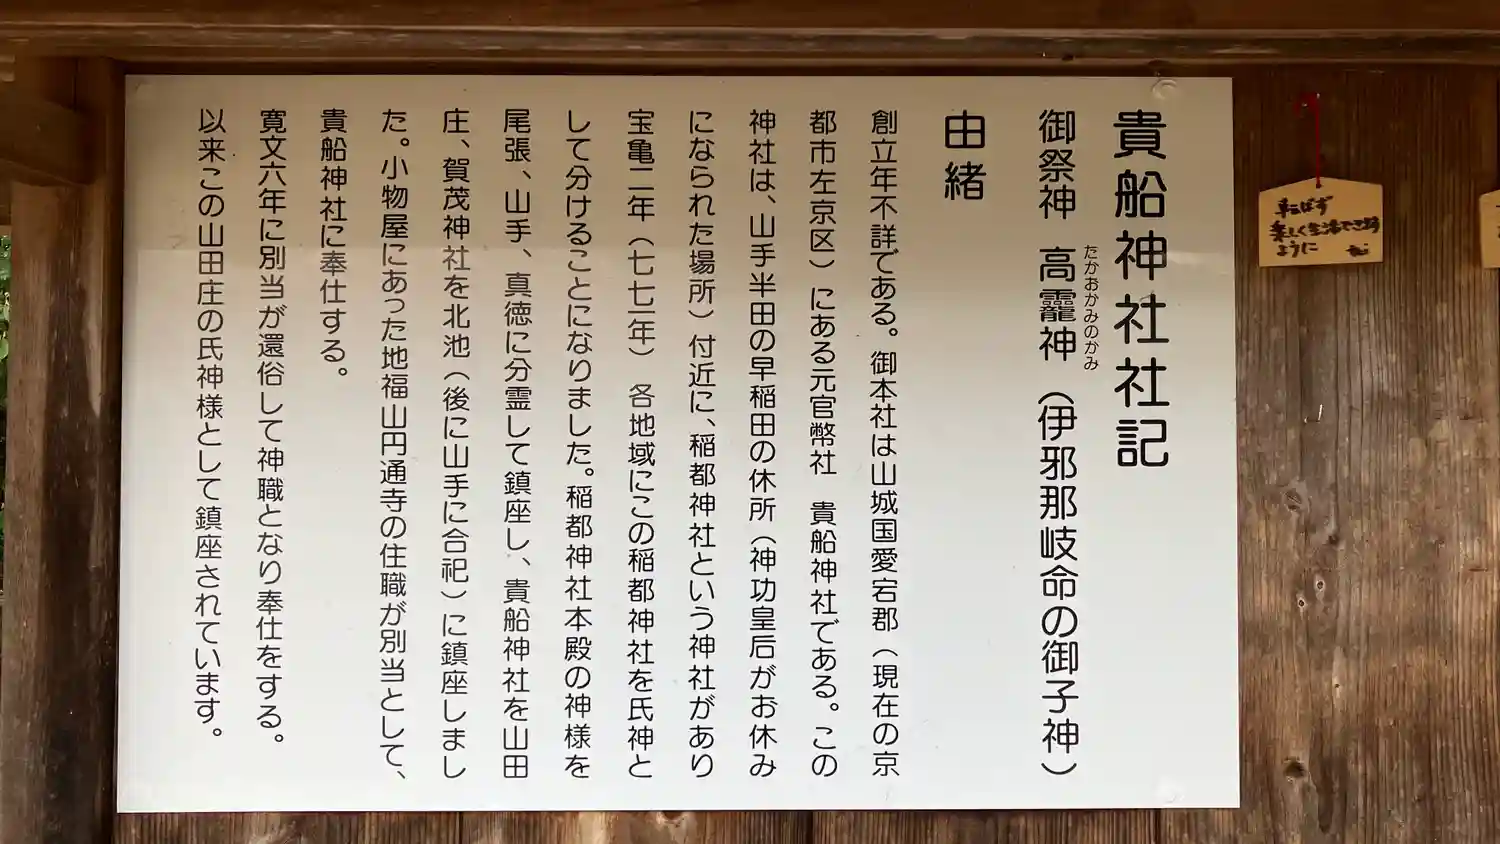 貴船神社社記
たかおかみのかみ
御祭神　高龗神　（伊邪那岐命の御子神）
由緒
創立年不詳である。御本社は山城国愛宕郡（現在の京
都市左京区）にある元官幣社　貴船神社である。この
神社は、山手半田の早稲田の休所（神功皇后がお休み
になられた場所）付近に、稲都神社という神社があり
宝亀二年（七七一年）　各地域にこの稲都神社を氏神と
して分けることになりました。稲都神社本殿の神様を
尾張、山手、真徳に分霊して鎮座し、貴船神社を山田
庄、賀茂神社を北池（後に山手に合祀）に鎮座しまし
た。小物屋にあった地福山円通寺の住職が別当として、
貴船神社に奉仕する。
寛文六年に別当が還俗して神職となり奉仕をする。
以来この山田庄の氏神様として鎮座されています。
転ばず
楽しく生活できます
ように